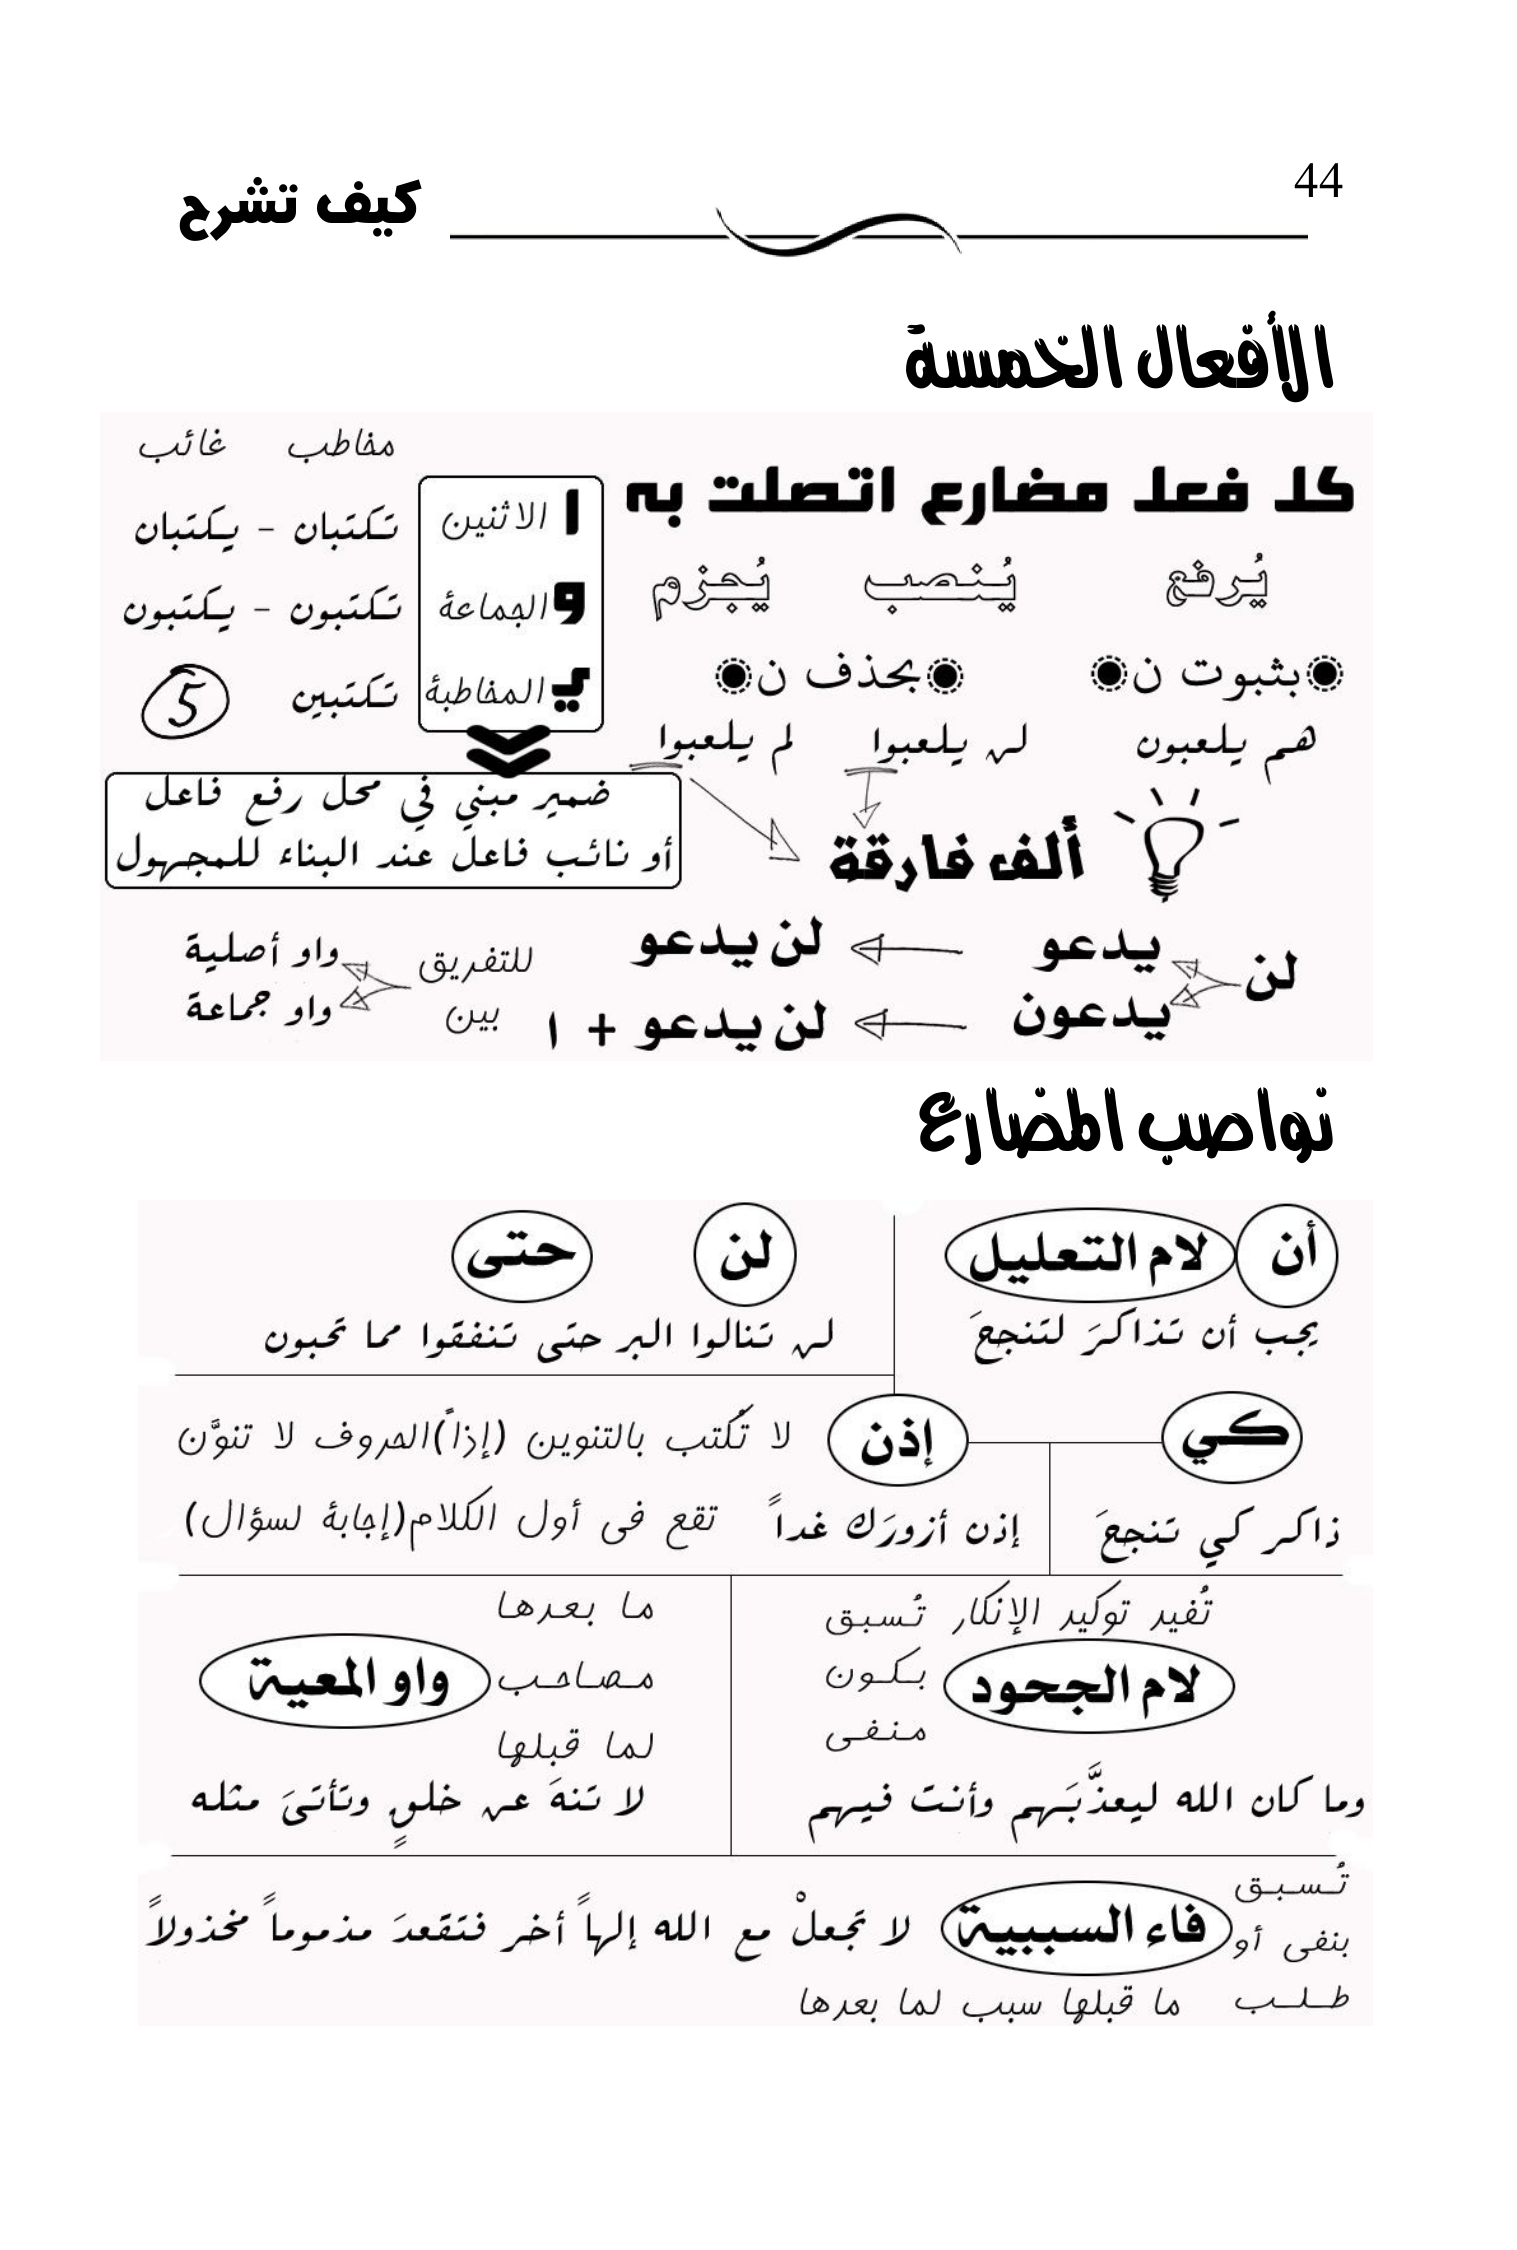 44
كيف تشرح
الأفعال الخمسة
كل فعل مضارع اتصلت به
ا الاثنين
و الجماعة
ي المخاطبة
مخاطب غائب
تكتبان - يكتبان
تكتبون - يكتبون
تكتبين 5
يُرفع يُنصب يُجزم
بثبوت ن بحذف ن
هم يلعبون لن يلعبوا لم يلعبوا
ألف فارقة
ضمير مبني في محل رفع فاعل
أو نائب فاعل عند البناء للمجهول
لن يدعو لن يدعو
يدعون لن يدعو + ا
للتفريق بين
واو أصلية
واو جماعة
نواصب المضارع
أن لام التعليل
يجب أن تذاكرَ لتنجحَ
لن حتى
لن تنالوا البر حتى تنفقوا مما تحبون
كي
ذاكر كي تنجحَ
إذن لا تُكتب بالتنوين (إذاً)الحروف لا تنوَّن
إذن أزورَك غداً تقع فى أول الكلام(إجابة لسؤال)
تُفيد توكيد الإنكار تُسبق
لام الجحود بكون
منفى
وما كان الله ليعذَّبَهم وأنت فيهم
ما بعدها
واو المعية مصاحب
لما قبلها
لا تنهَ عن خلقٍ وتأتىَ مثله
تُسبق
بنفى أو
طلب
فاء السببية لا تجعلْ مع الله إلهاً أخر فتقعدَ مذموماً مخذولاً
ما قبلها سبب لما بعدها